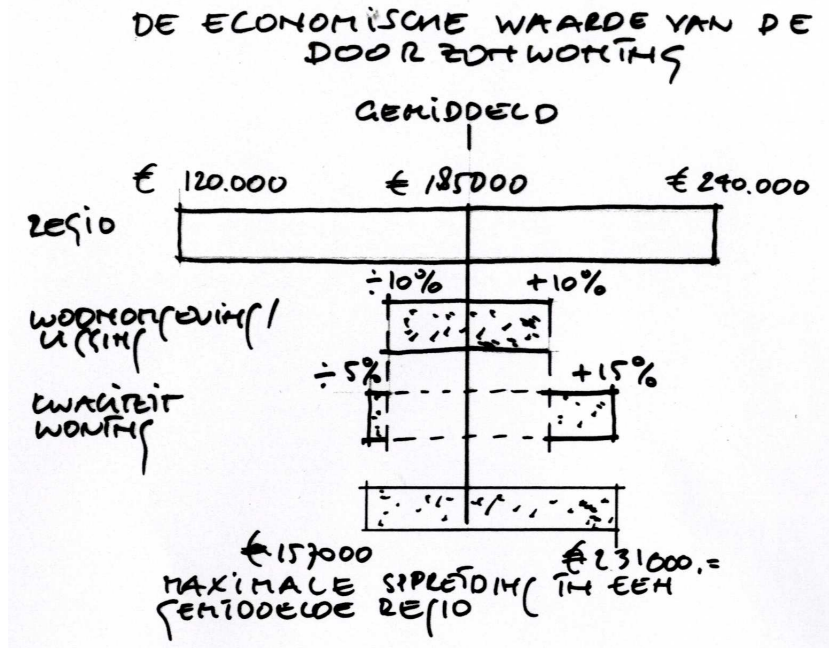 DE ECONOMISCHE WAARDE VAN DE
DOORZONWONING
GEMIDDELD
€ 120.000 € 185000 € 240.000
REGIO
÷10% +10%
WOONOMGEVING/
LIGGING
÷5% +15%
KWALITEIT
WONING
€ 157000 € 231000,=
MAXIMALE SPREIDING IN EEN
GEMIDDELDE REGIO